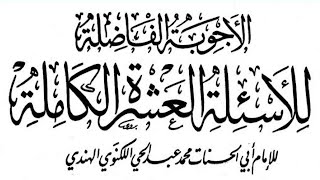 الأجوبة الفاضلة
للأسئلة العشرة الكاملة
للإمام أبي الحسنات محمد عبد الحي اللكنوي الهندي